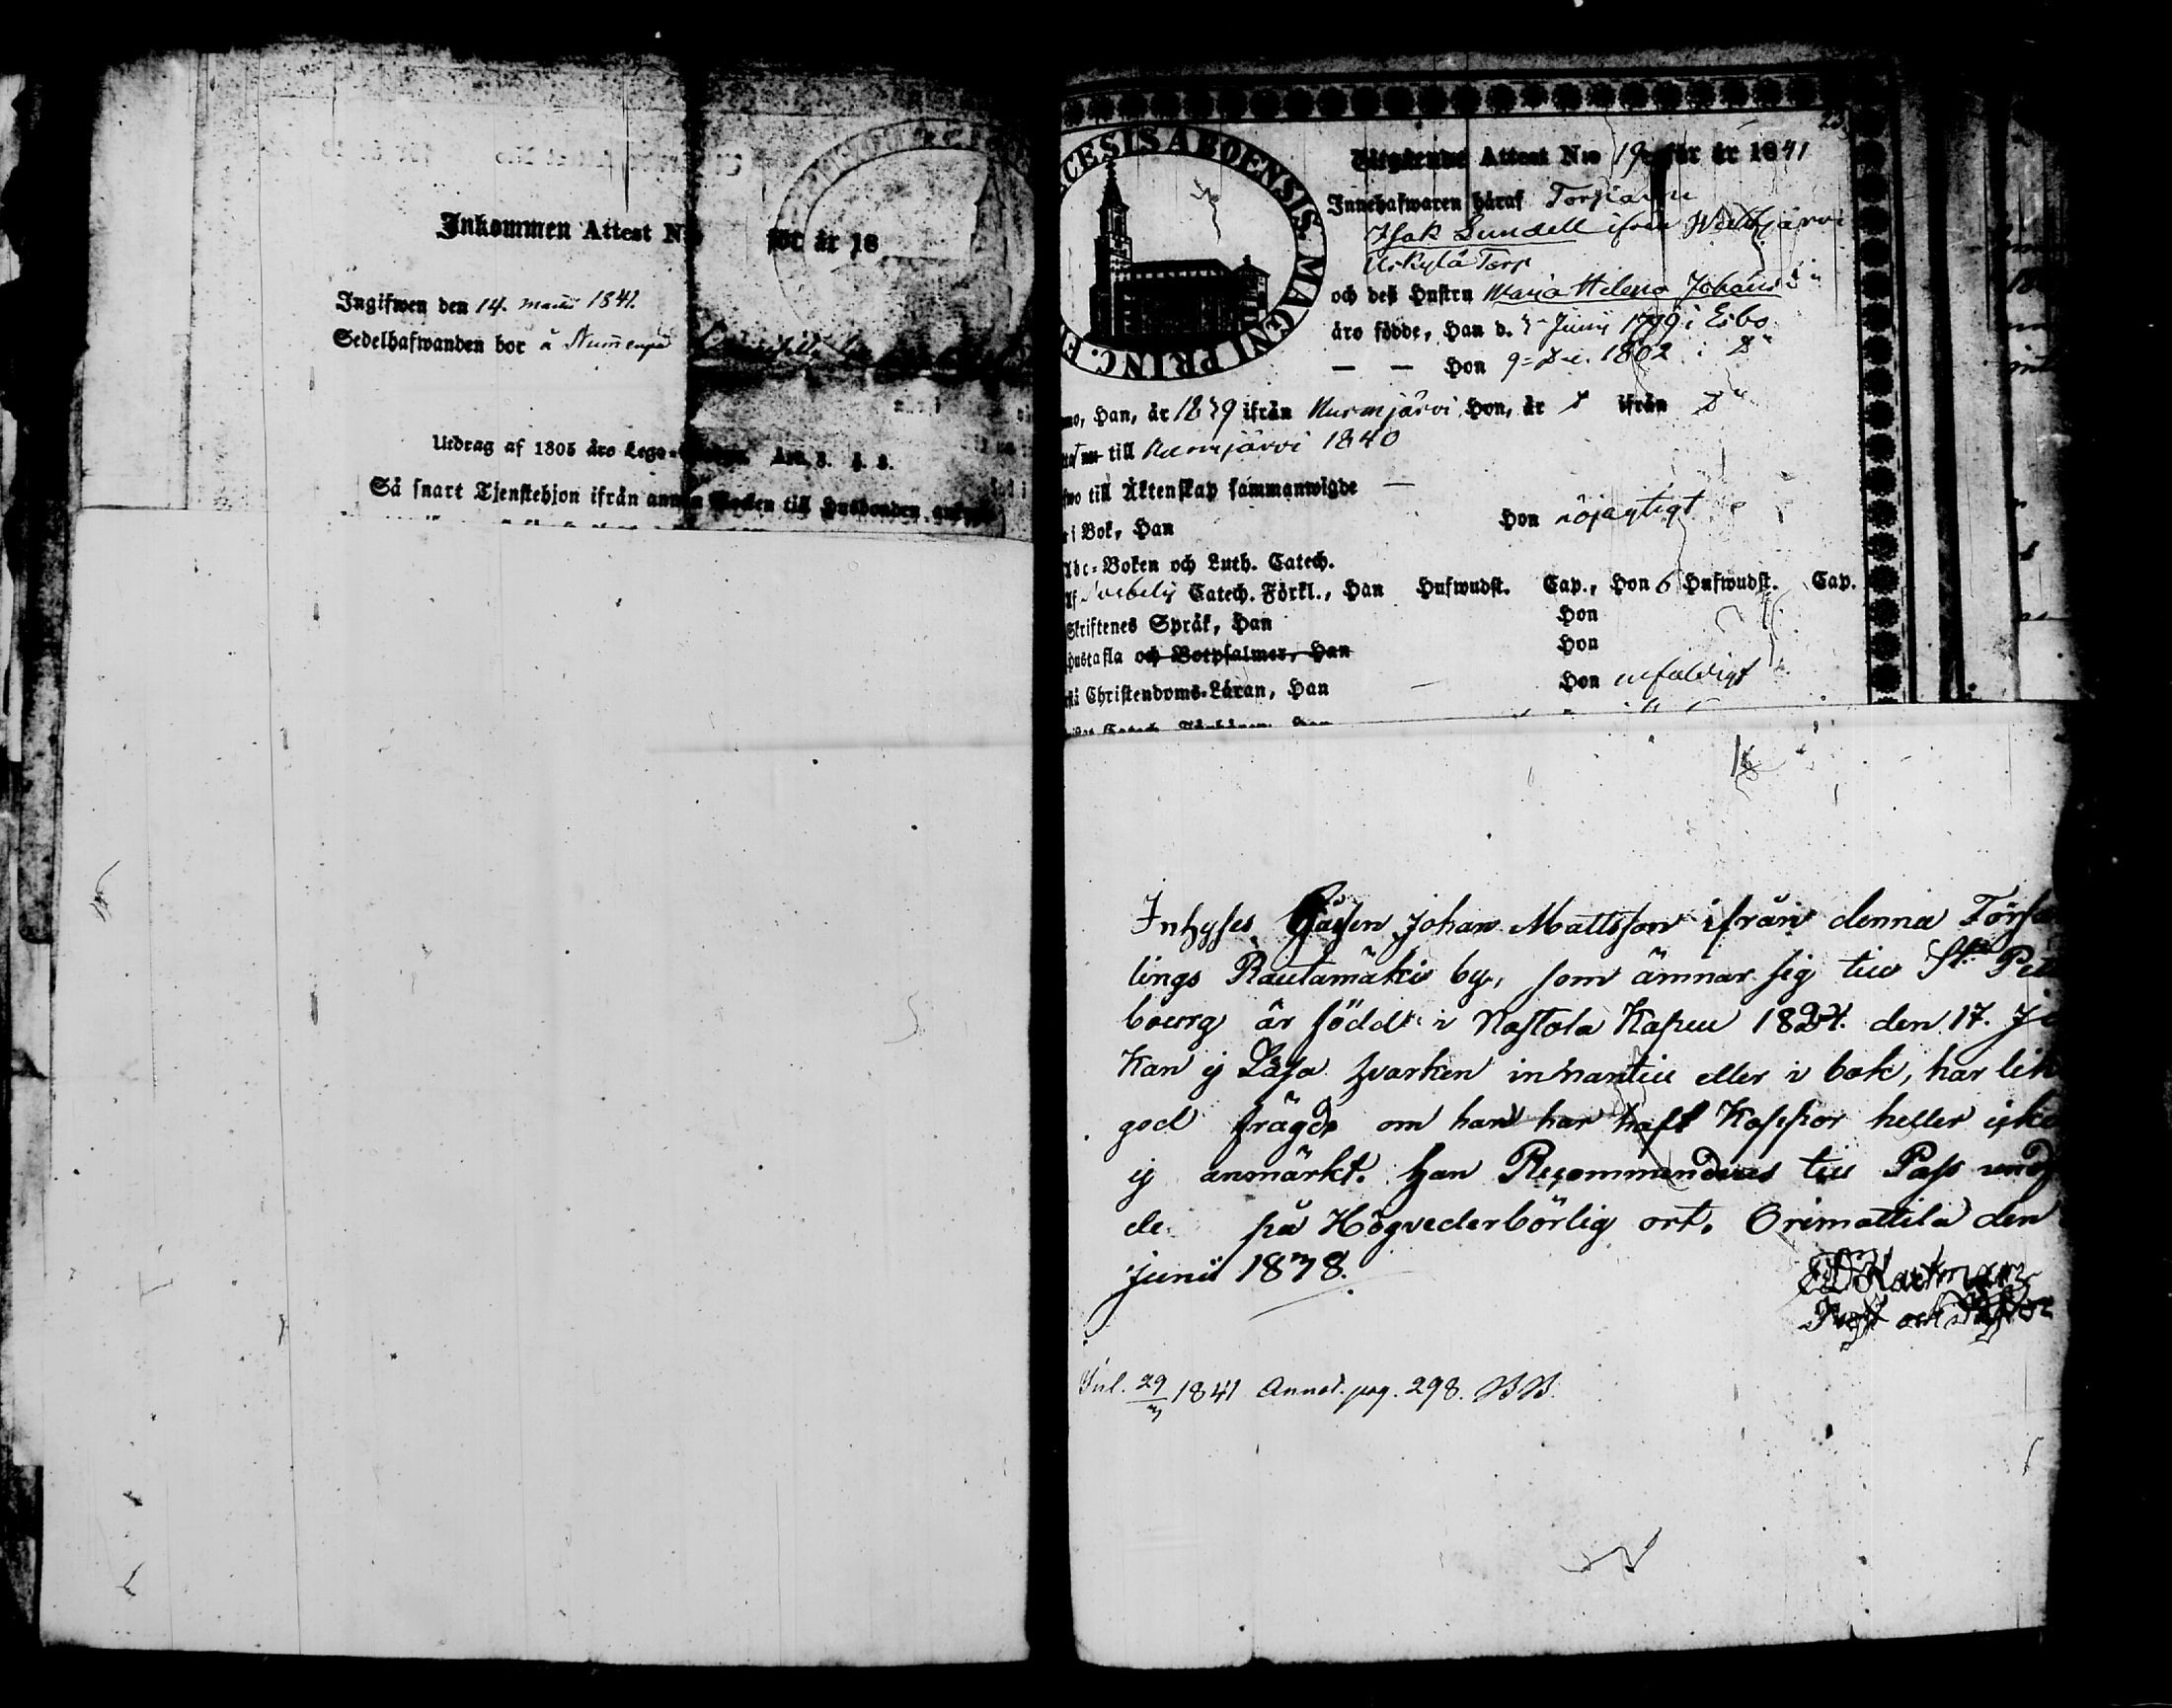 Inkommen Attest N för år 18
Ingifwen den 14. martii 1841.
Sedelhafwanden bor å Nummenpä
Utdrag af 1805 års Lego- Art. 3. §. 3.
Så snart Tjenstehjon ifrån annan Socken till Husbonden
DIOECESIS ABOENSIS MAGNI PRINC. F
23.
Utgående Attest N:o 19 för år 1841
Innehafwaren häraf Torparen
Isak Lundell ifrån Wihtijärvi
Uskylä Torp
och deß Hustru Maria Helena Johansd:r
äro födde, Han d. Junii i Esbo
— — Hon 9 Dec. 1802 i D:o
mo, Han, år 1839 ifrån Nurmjärvi Hon, år D ifrån D:o
till Nurmjärvi 1840
till Äktenskap sammanwigde —
i Bok, Han Hon nöjagtigt
Abc-Boken och Luth. Catech.
Af Svebelij Catech. Förkl., Han Hufwudst. Cap., Hon 6 Hufwudst. Cap.
Skriftenes Språk, Han Hon
Hustafla och Botpsalmer, Han Hon
Christendoms-Läran, Han — Hon enfaldigt
Inhyses Gåssen Johan Mattsson ifrån denna Förſa
lings Rautamäki by, som ämnar sig till S:t Pet
bourg är född i Nastola Kapell 1824. den 17. J
Kan ej Läsa hvarken innantill eller i bok, har lik
god frägd, om han har haft Koppor heller ej
ej anmärkt. Han Recommenderes till Pass
de på Högvederbörlig ort. Orimattila den
Junii 1838.
Hartman
Prost och Pastor
Inl. 29/3 1841 Annot. pag. 298. BB.